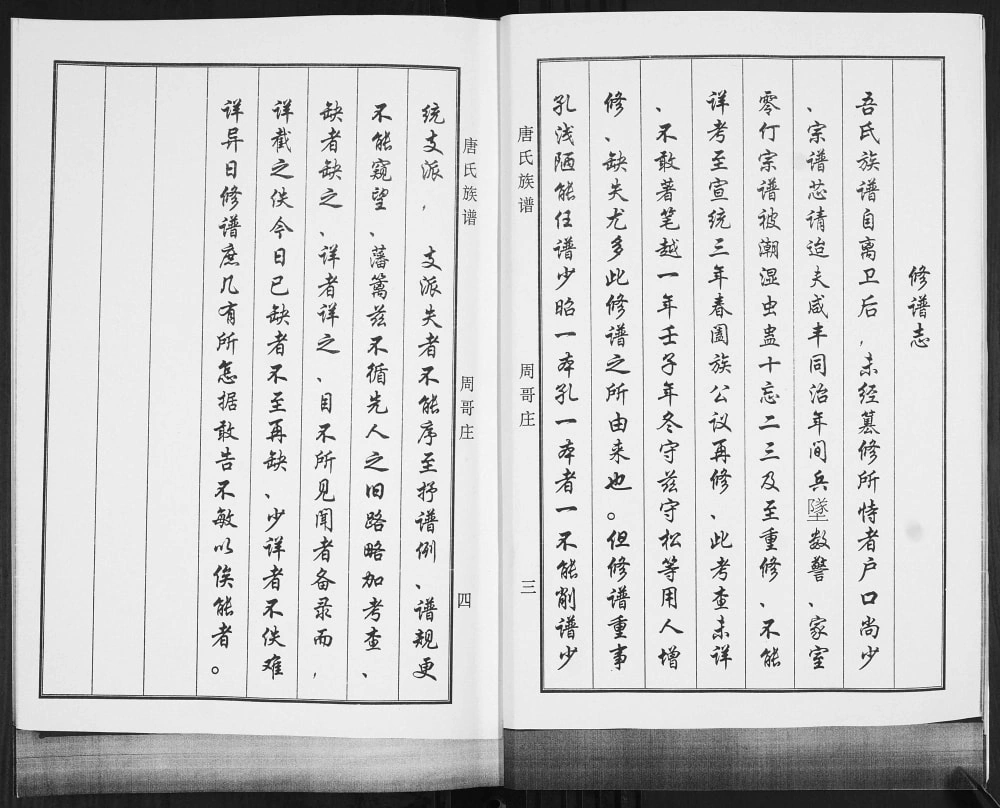 修谱志
吾氏族谱自离卫后，未经篡修所恃者户口尚少
、宗谱芯请迨夫咸丰同治年间兵墜数警、家室
零仃宗谱被潮湿虫蛊十忘二三及至重修、不能
详考至宣统三年春阖族公议再修、此考查未详
、不敢著笔越一年壬子年冬守兹守松等用人增
修、缺失尤多此修谱之所由来也。但修谱重事
孔浅陋能任谱少昭一本孔一本者一不能削谱少
唐氏族谱
周哥庄
三
唐氏族谱
周哥庄
四
统支派， 支派失者不能序至抒谱例、谱规更
不能窥望、藩篱兹不循先人之旧路略加考查、
缺者缺之、详者详之、目不所见闻者备录而，
详截之佚今日已缺者不至再缺、少详者不佚难
详异日修谱庶几有所怎据敢告不敏以俟能者。